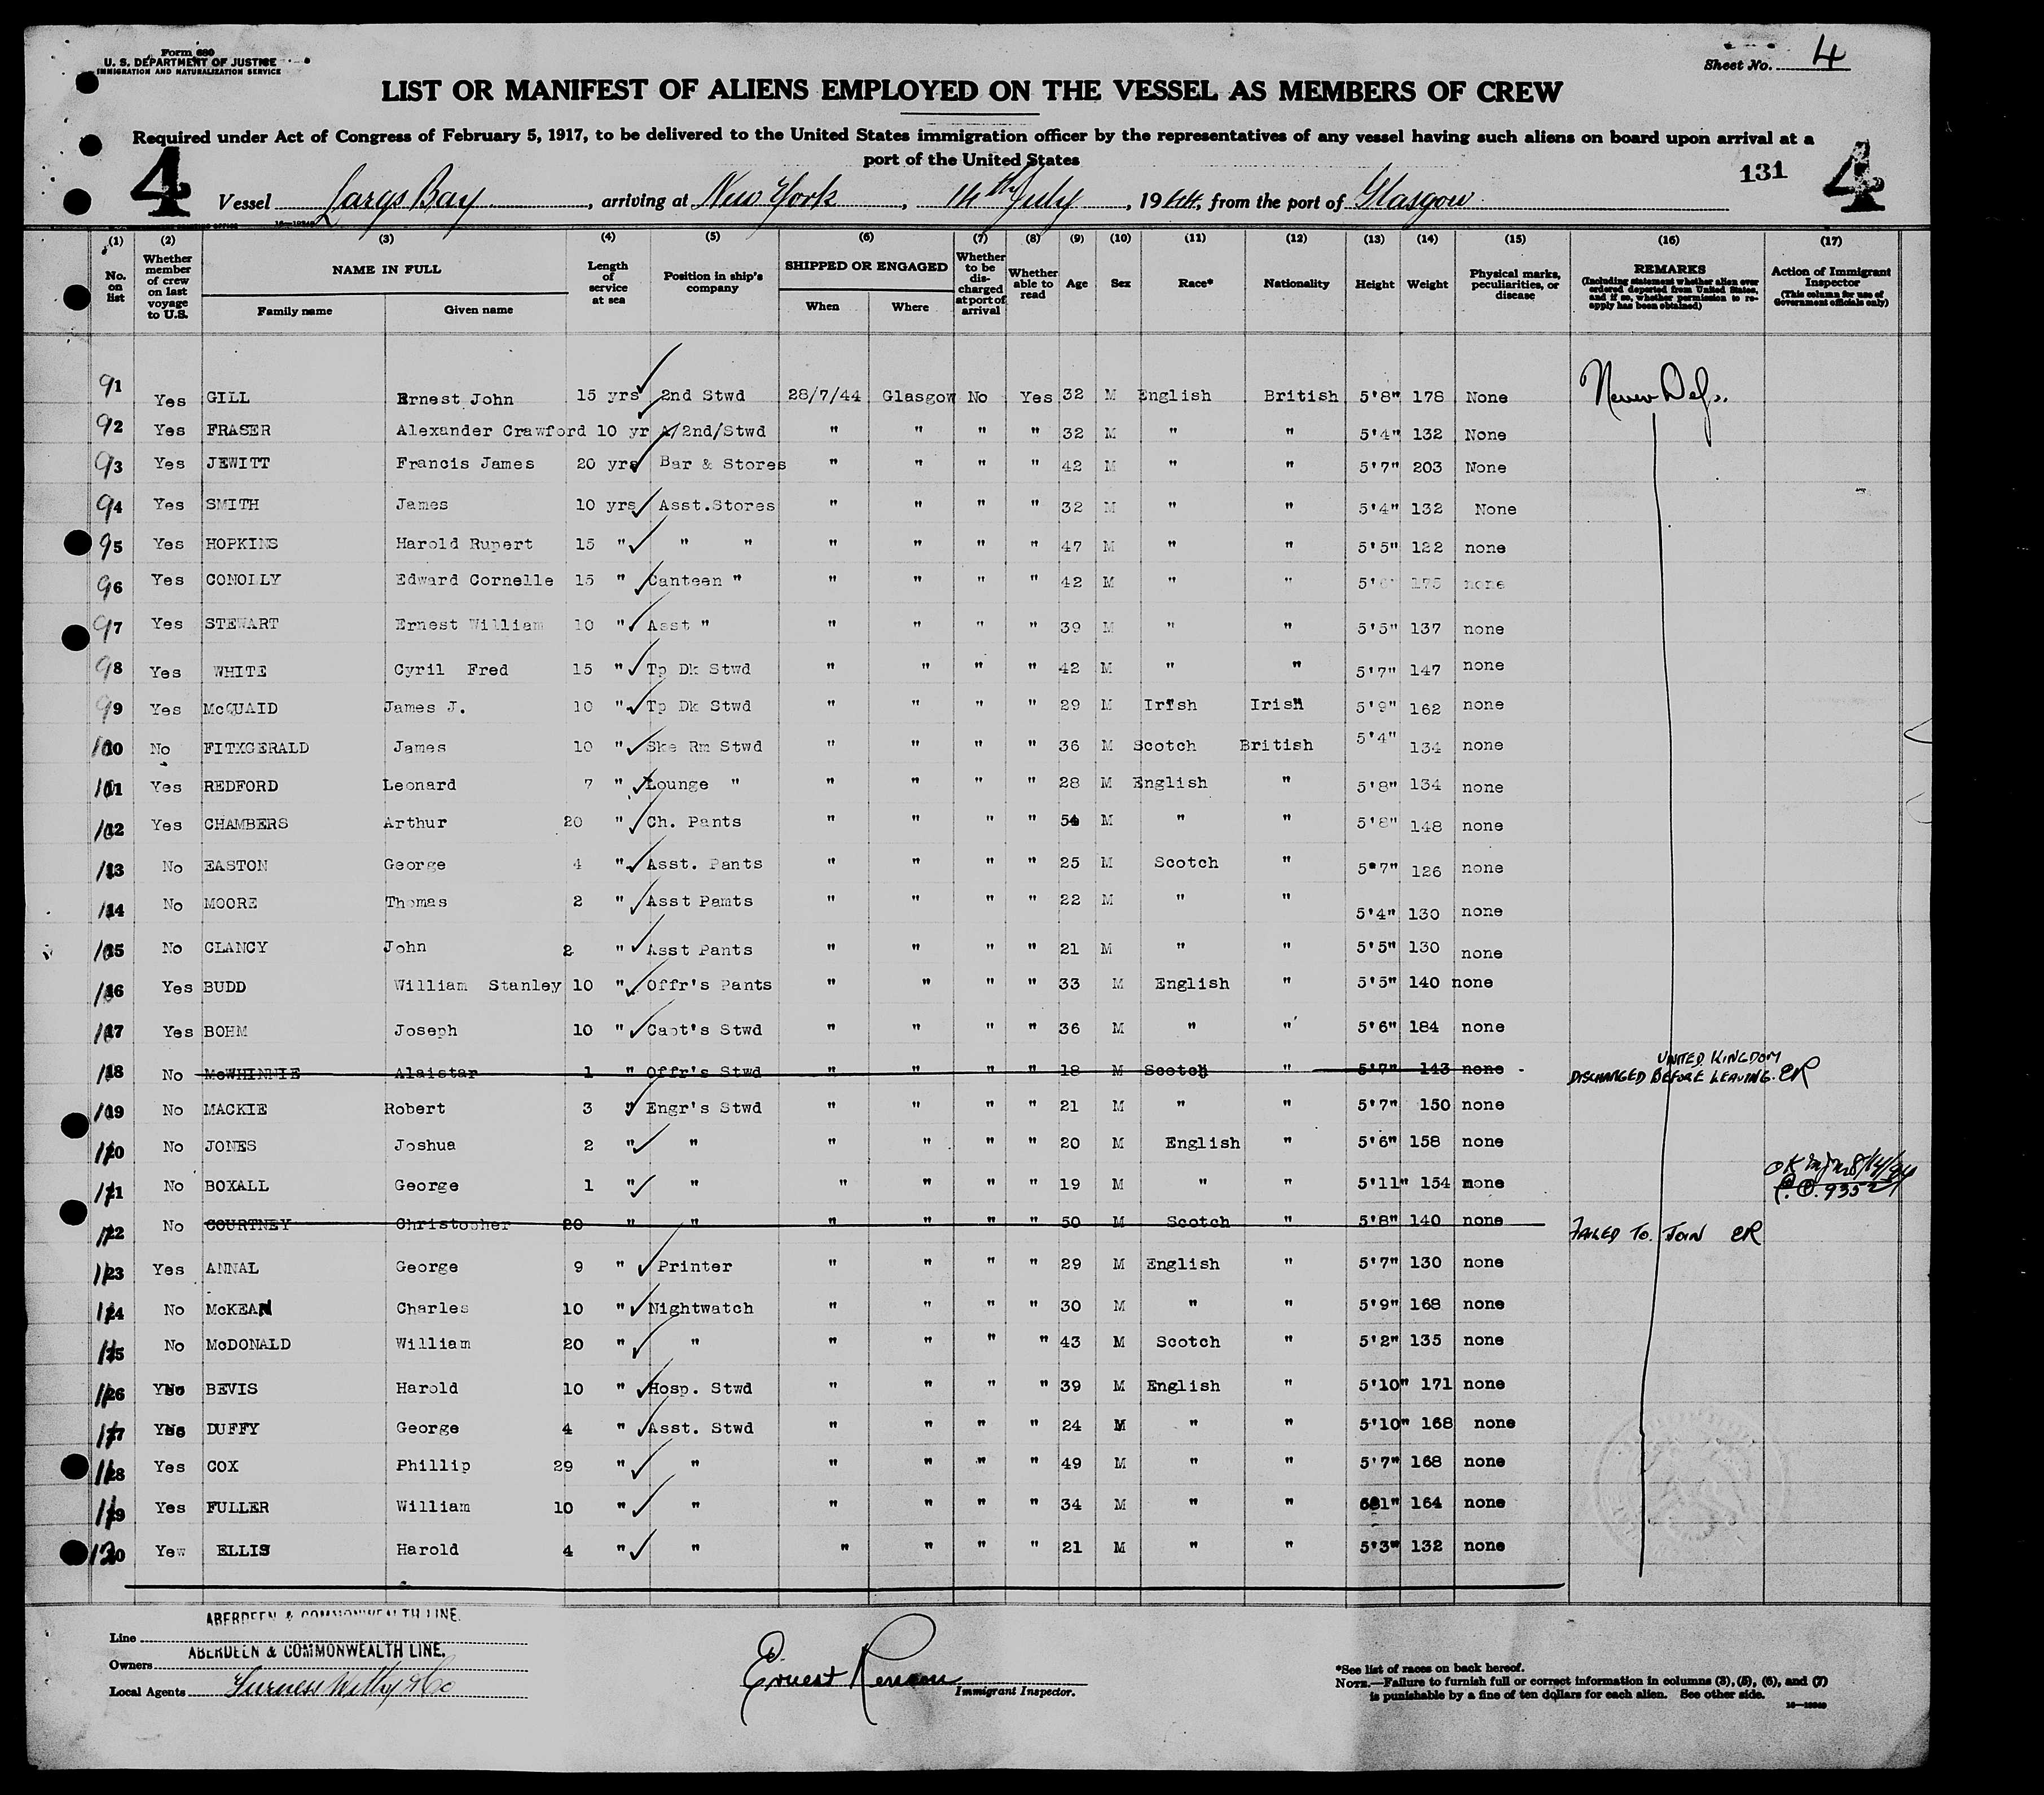 Form 680
U. S. DEPARTMENT OF JUSTICE
IMMIGRATION AND NATURALIZATION SERVICE
Sheet No. 4
LIST OR MANIFEST OF ALIENS EMPLOYED ON THE VESSEL AS MEMBERS OF CREW
Required under Act of Congress of February 5, 1917, to be delivered to the United States immigration officer by the representatives of any vessel having such aliens on board upon arrival at a
port of the United States
131
4 4
Vessel Largs Bay, arriving at New York, 14th July, 1944, from the port of Glasgow
(1) (2) (3) (4) (5) (6) (7) (8) (9) (10) (11) (12) (13) (14) (15) (16) (17)
No. on list Whether member of crew on last voyage to U.S. NAME IN FULL Family name Given name Length of service at sea Position in ship's company SHIPPED OR ENGAGED When Where Whether to be discharged at port of arrival Whether able to read Age Sex Race* Nationality Height Weight Physical marks, peculiarities, or disease REMARKS (Including statement whether alien ever ordered deported from United States, and if so, whether permission to reapply has been obtained) Action of Immigrant Inspector (This column for use of Government officials only)
91 Yes GILL Ernest John 15 yrs 2nd Stwd 28/7/44 Glasgow No Yes 32 M English British 5'8" 178 None Never Dep.
92 Yes FRASER Alexander Crawford 10 yr A/2nd/Stwd " " " " 32 M " " 5'4" 132 None
93 Yes JEWITT Francis James 20 yrs Bar & Stores " " " " 42 M " " 5'7" 203 None
94 Yes SMITH James 10 yrs Asst.Stores " " " " 32 M " " 5'4" 132 None
95 Yes HOPKINS Harold Rupert 15 " " " " " " " 47 M " " 5'5" 122 none
96 Yes CONOLLY Edward Cornelle 15 " Canteen " " " " " 42 M " " 5'6" 175 none
97 Yes STEWART Ernest William 10 " Asst " " " " " 39 M " " 5'5" 137 none
98 Yes WHITE Cyril Fred 15 " Tp Dk Stwd " " " " 42 M " " 5'7" 147 none
99 Yes McQUAID James J. 10 " Tp Dk Stwd " " " " 29 M Irish Irish 5'9" 162 none
100 No FITXGERALD James 10 " Ske Rm Stwd " " " " 36 M Scotch British 5'4" 134 none
101 Yes REDFORD Leonard 7 " Lounge " " " " " 28 M English " 5'8" 134 none
102 Yes CHAMBERS Arthur 20 " Ch. Pants " " " " 54 M " " 5'8" 148 none
103 No EASTON George 4 " Asst. Pants " " " " 25 M Scotch " 5"7" 126 none
104 No MOORE Thomas 2 " Asst Pamts " " " " 22 M " " 5'4" 130 none
105 No CLANCY John 2 " Asst Pants " " " " 21 M " " 5'5" 130 none
106 Yes BUDD William Stanley 10 " Offr's Pants " " " " 33 M English " 5'5" 140 none
107 Yes BOHM Joseph 10 " Capt's Stwd " " " " 36 M " " 5'6" 184 none
108 No McWHINNIE Alaistar 1 " Offr's Stwd " " " " 18 M Scotch " 5'7" 143 none UNITED KINGDOM DISCHARGED BEFORE LEAVING. ER
109 No MACKIE Robert 3 " Engr's Stwd " " " " 21 M " " 5'7" 150 none
110 No JONES Joshua 2 " " " " " " 20 M English " 5'6" 158 none
111 No BOXALL George 1 " " " " " " 19 M " " 5'11" 154 none
112 No COURTNEY Christopher 20 " " " " " " 50 M Scotch " 5'8" 140 none FAILED TO JOIN ER
113 Yes ANNAL George 9 " Printer " " " " 29 M English " 5'7" 130 none
114 No McKEAN Charles 10 " Nightwatch " " " " 30 M " " 5'9" 168 none
115 No McDONALD William 20 " " " " " " 43 M Scotch " 5'2" 135 none
116 No BEVIS Harold 10 " Hosp. Stwd " " " " 39 M English " 5'10" 171 none
117 DUFFY George 4 " Asst. Stwd " " " " 24 M " " 5'10" 168 none
118 Yes COX Phillip 29 " " " " " " 49 M " " 5'7" 168 none
119 Yes FULLER William 10 " " " " " " 34 M " " 6'1" 164 none
120 Yew ELLIS Harold 4 " " " " " " 21 M " " 5'3" 132 none
ABERDEEN & COMMONWEALTH LINE.
Line
ABERDEEN & COMMONWEALTH LINE.
Owners
Local Agents Furness Withy & Co
Ernest
Immigrant Inspector.
*See list of races on back hereof.
NOTE.—Failure to furnish full or correct information in columns (3), (5), (6), and (7)
is punishable by a fine of ten dollars for each alien. See other side.